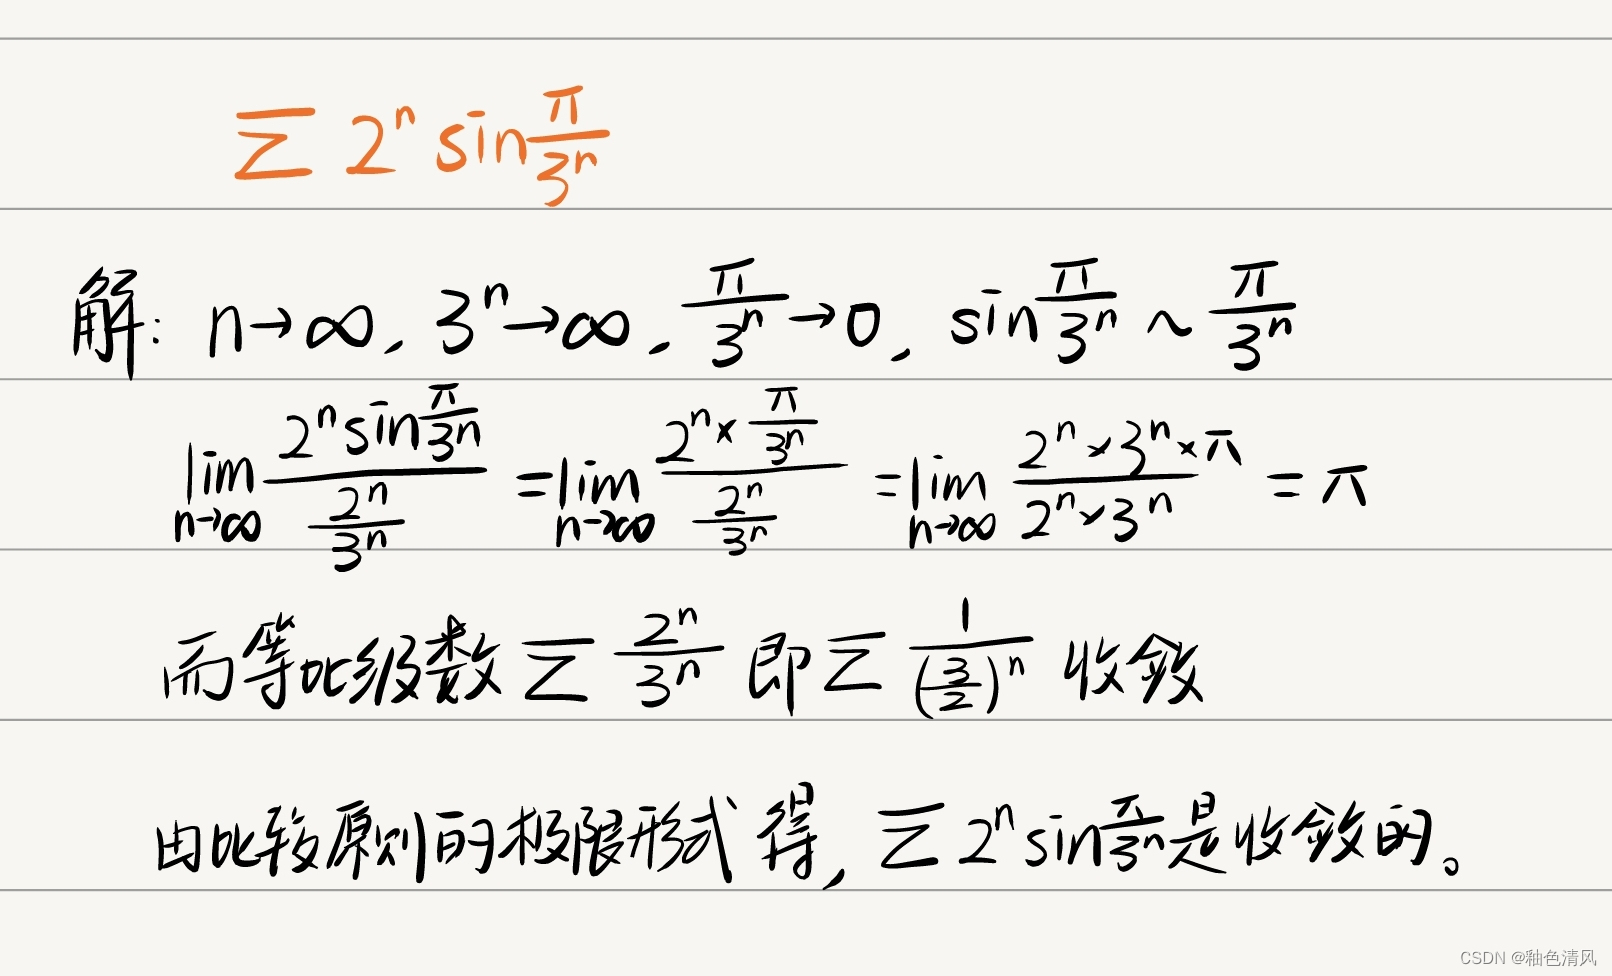 ∑ 2^n sin π/3^n
解: n→∞, 3^n→∞, π/3^n→0, sin π/3^n ~ π/3^n
lim_{n→∞} (2^n sin π/3^n)/(2^n/3^n) = lim_{n→∞} (2^n × π/3^n)/(2^n/3^n) = lim_{n→∞} (2^n × 3^n × π)/(2^n × 3^n) = π
而等比级数 ∑ 2^n/3^n 即 ∑ 1/(3/2)^n 收敛
由比较原则的极限形式得, ∑ 2^n sin π/3^n 是收敛的。
CSDN @釉色清风